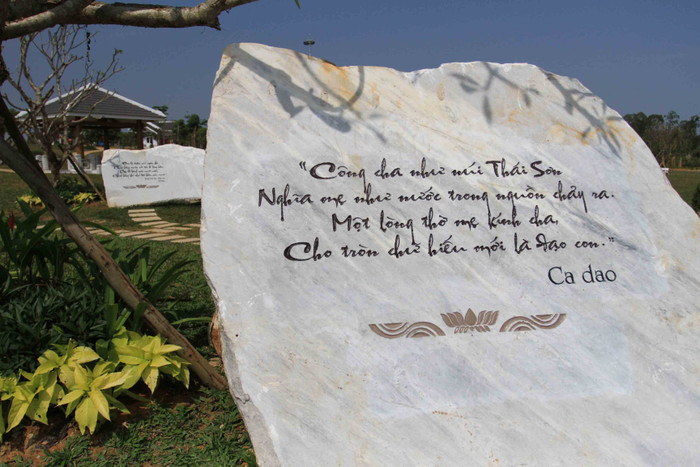 "Công cha như núi Thái Sơn
Nghĩa mẹ như nước trong nguồn chảy ra.
Một lòng thờ mẹ kính cha,
Cho tròn chữ hiếu mới là đạo con."
Ca dao